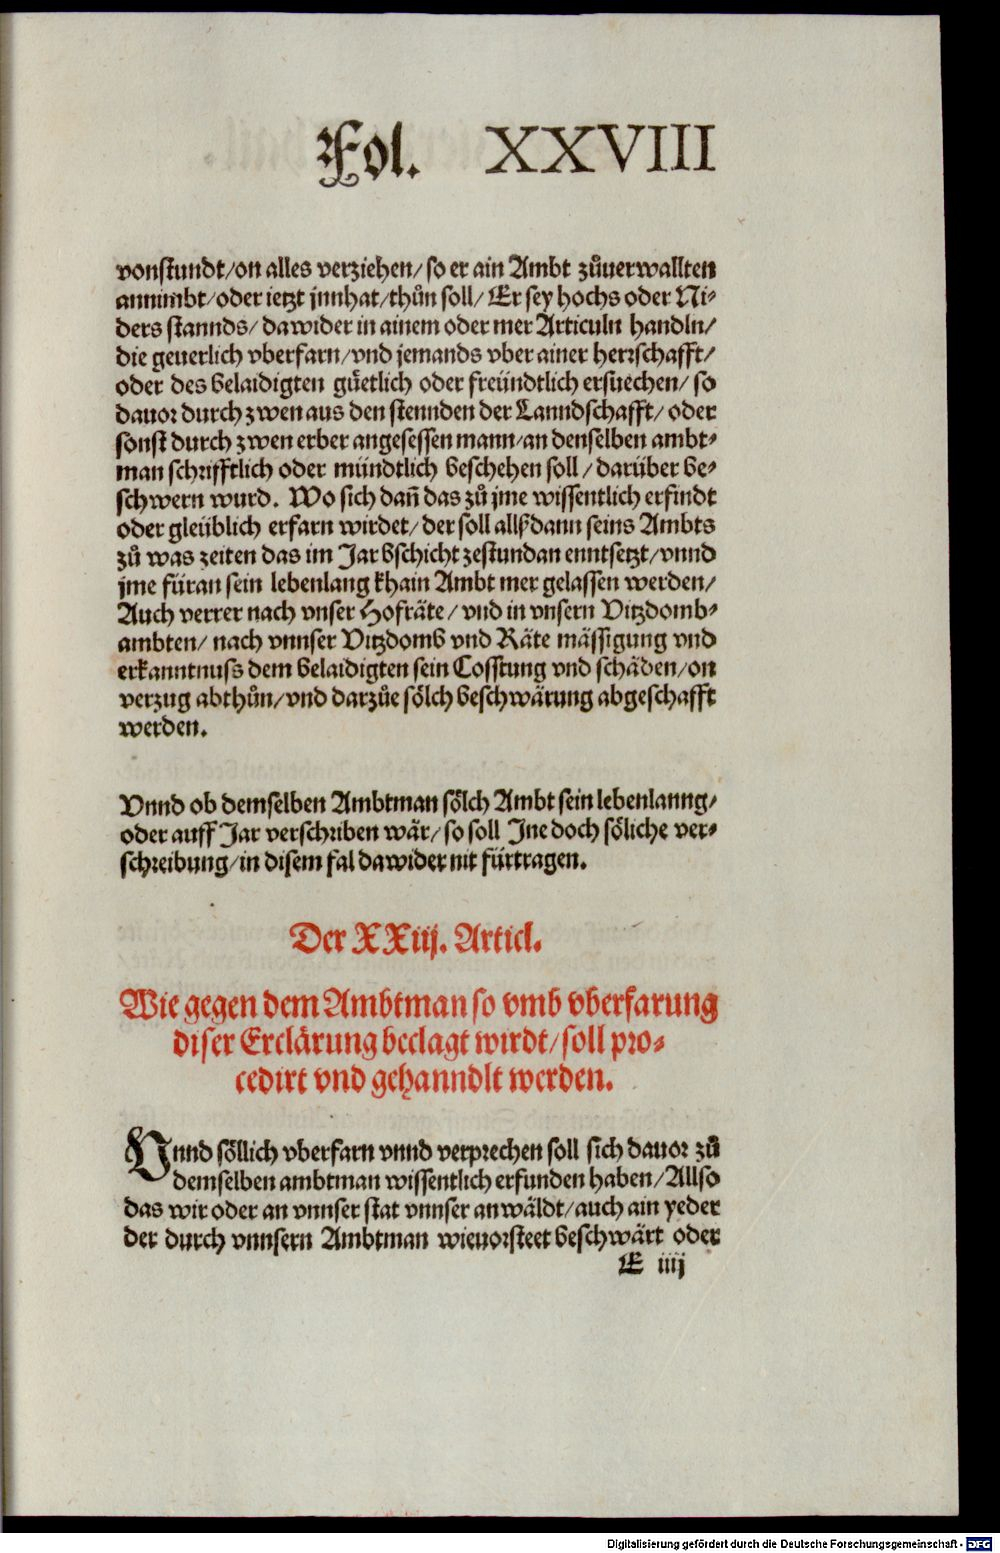 Fol. XXVIII
vonstundt/on alles verziehen/so er ain Ambt zůuerwallten
annimbt/oder ietzt jnnhat/thůn soll/Er sey hochs oder Ni-
ders stannds/dawider in ainem oder mer Articuln handln/
die geuerlich vberfarn/vnd jemands vber ainer herrschafft/
oder des belaidigten gůetlich oder freündtlich ersuechen/so
dauor durch zwen aus den stennden der Lanndschafft/oder
sonst durch zwen erber angesessen mann/an denselben ambt-
man schrifftlich oder mündtlich beschehen soll/darüber be-
schwern wurd. Wo sich dañ das zů jme wissentlich erfindt
oder gleüblich erfarn wirdet/der soll allßdann seins Ambts
zů was zeiten das im Jar bschicht zestundan enntsetzt/vnnd
jme füran sein lebenlang khain Ambt mer gelassen werden/
Auch verrer nach vnser Hofräte/vnd in vnsern Vitzdomb-
ambten/nach vnnser Vitzdomb vnd Räte mässigung vnd
erkanntnuss dem belaidigten sein Cosstung vnd schäden/on
verzug abthůn/vnd darzůe sölch beschwärung abgeschafft
werden.
Vnnd ob demselben Ambtman sölch Ambt sein lebenlanng/
oder auff Jar verschriben wär/so soll Jne doch söliche ver-
schreibung/in disem fal dawider nit fürtragen.
Der XXiij. Articl.
Wie gegen dem Ambtman so vmb vberfarung
diser Erclärung beclagt wirdt/soll pro-
cedirt vnd gehanndlt werden.
Vnnd söllich vberfarn vnnd verprechen soll sich dauor zů
demselben ambtman wissentlich erfunden haben/Allso
das wir oder an vnnser stat vnnser anwäldt/auch ain yeder
der durch vnnsern Ambtman wieuorsteet beschwärt oder
E iiij
Digitalisierung gefördert durch die Deutsche Forschungsgemeinschaft - DFG